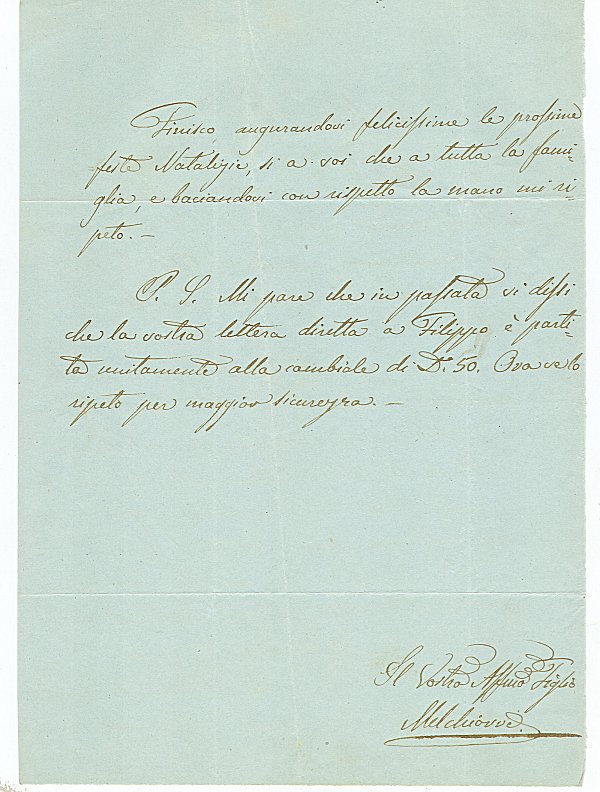 Finisco, augurandovi felicissime le prossime
feste Natalizie, sì a voi che a tutta la fami-
glia, e baciandovi con rispetto la mano mi ri-
peto. —
P. S. Mi pare che in passata vi dissi
che la vostra lettera diretta a Filippo è parti-
ta unitamente alla cambiale di D. 50. Ora ve lo
ripeto per maggior sicurezza. —
Il Vostro Affmo Figlio
Melchiorre